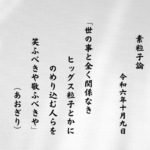 素粒子論
令和六年十月九日
「世の事と全く関係なき
ヒッグス粒子とかに
のめり込む人らを
笑ふべきや敬ふべきや」
（あおぎり）